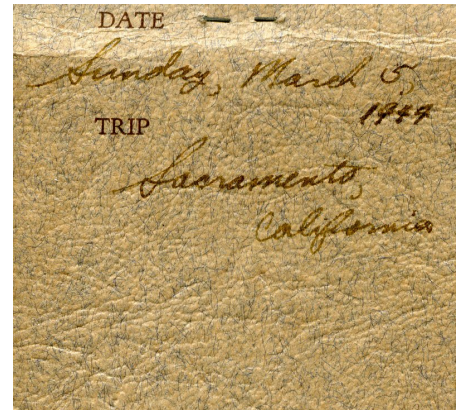 DATE
Sunday, March 5,
1949
TRIP
Sacramento,
California